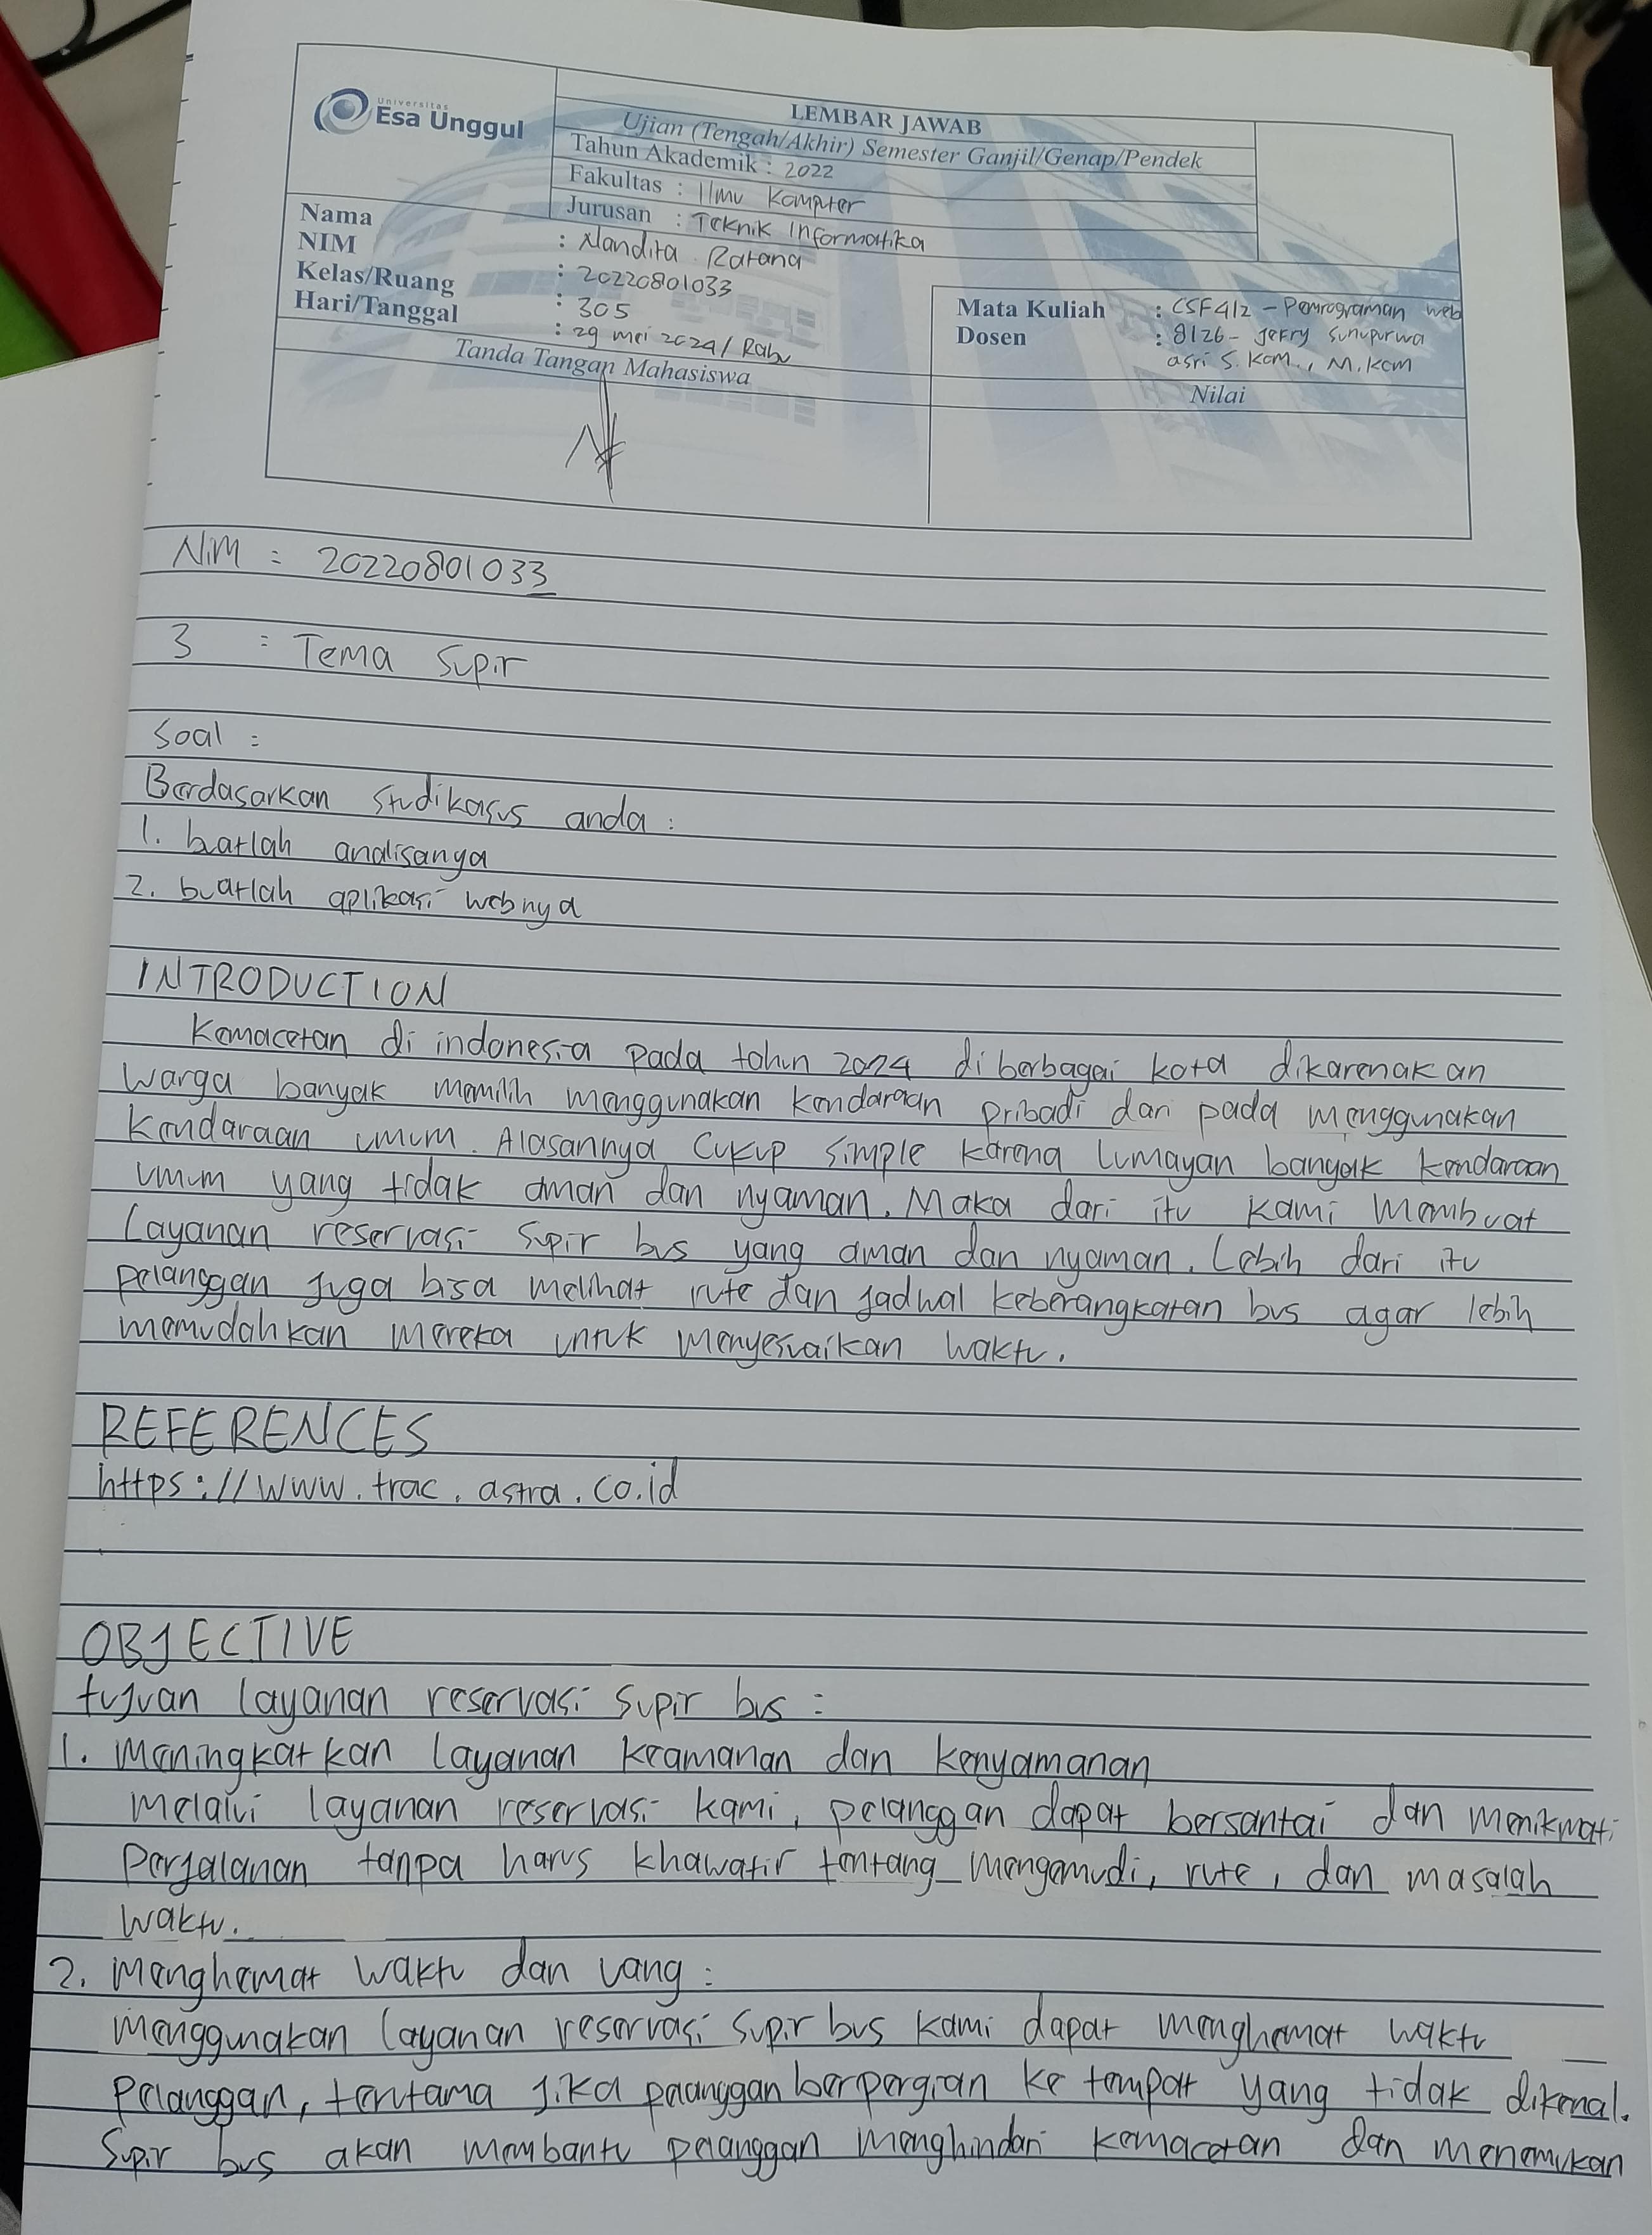 Universitas
Esa Unggul
LEMBAR JAWAB
Ujian (Tengah/Akhir) Semester Ganjil/Genap/Pendek
Tahun Akademik : 2022
Fakultas : Ilmu Komputer
Jurusan : Teknik Informatika
Nama : Nandita Ratana
NIM : 20220801033
Kelas/Ruang : 305
Hari/Tanggal : 29 mei 2024 / Rabu
Mata Kuliah : CSF412 - Pemrograman web
Dosen : 8126 - Jefry Sunupurwa
asri S. Kom., M.Kom
Tanda Tangan Mahasiswa
Nilai
NiM : 20220801033
3 : Tema Supir
Soal :
Berdasarkan studikasus anda :
1. batlah analisanya
2. buatlah aplikasi webnya
INTRODUCTION
Kemacetan di indonesia pada tahun 2024 di berbagai kota dikarenakan
warga banyak memilih menggunakan kendaraan pribadi dari pada menggunakan
kendaraan umum. Alasannya cukup simple karena lumayan banyak kendaraan
umum yang tidak aman dan nyaman. Maka dari itu kami membuat
Layanan reservasi supir bus yang aman dan nyaman. Lebih dari itu
pelanggan juga bisa melihat rute dan jadwal keberangkatan bus agar lebih
memudahkan mereka untuk menyesuaikan waktu.
REFERENCES
https://www.trac.astra.co.id
OBJECTIVE
tujuan layanan reservasi supir bus :
1. Meningkatkan layanan keamanan dan kenyamanan
Melalui layanan reservasi kami, pelanggan dapat bersantai dan menikmati
perjalanan tanpa harus khawatir tentang mengemudi, rute, dan masalah
waktu.
2. Menghemat waktu dan uang :
menggunakan layanan reservasi supir bus kami dapat menghemat waktu
Pelanggan, terutama jika paanggan berpergian ke tempat yang tidak dikenal.
Supir bus akan membantu pelanggan menghindari kemacetan dan menemukan